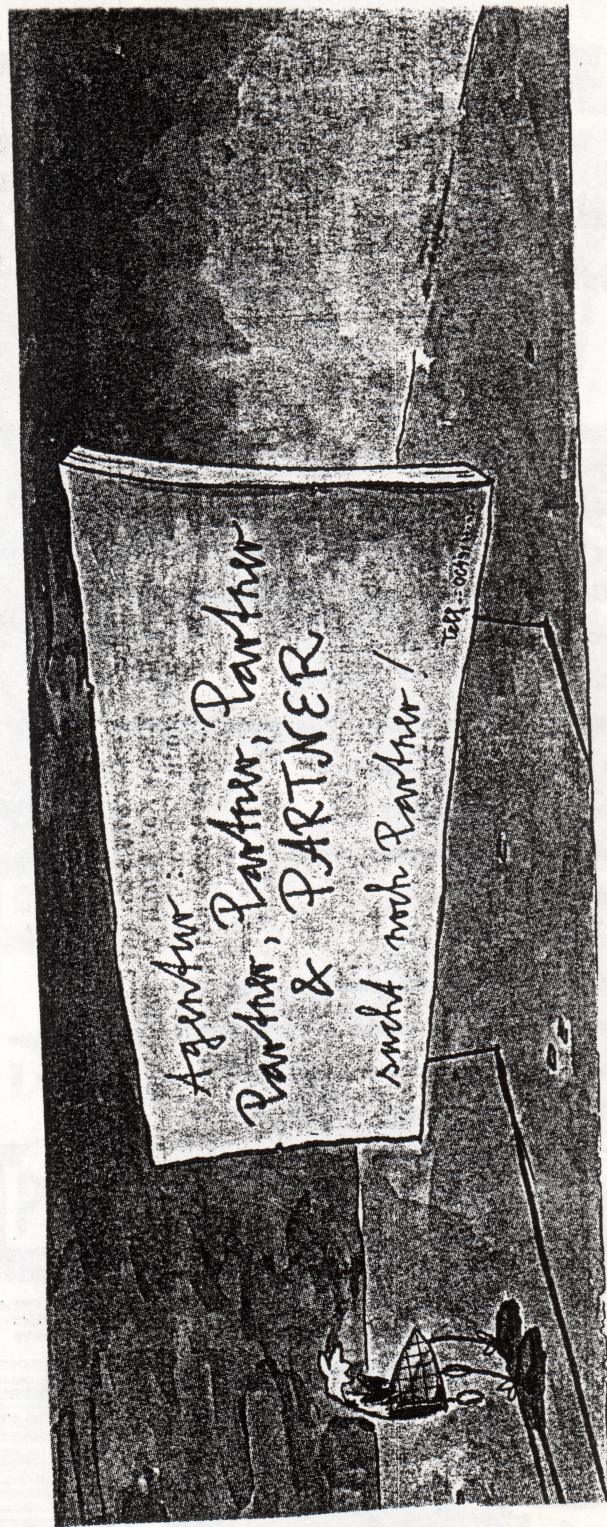 Agentur
Partner, Partner, Partner
& PARTNER
sucht noch Partner!
Telf.: